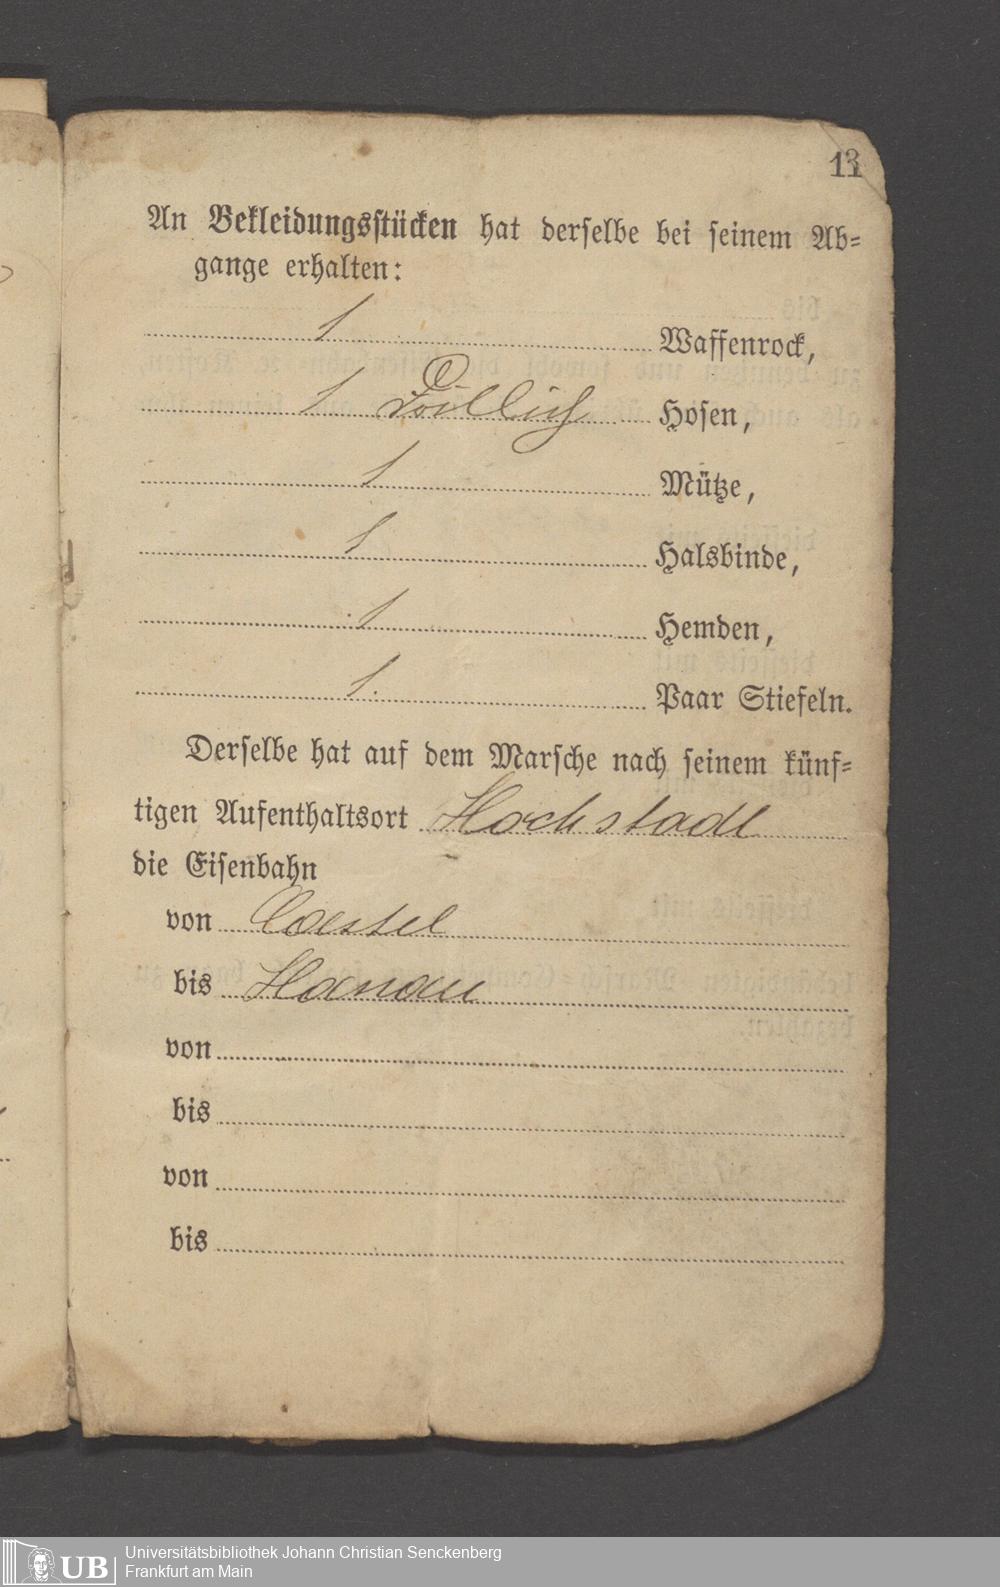 13
An Bekleidungsstücken hat derselbe bei seinem Ab-
gange erhalten:
1 Waffenrock,
1 Drillich Hosen,
1 Mütze,
1 Halsbinde,
1 Hemden,
1 Paar Stiefeln.
Derselbe hat auf dem Marsche nach seinem künf-
tigen Aufenthaltsort Hochstadt
die Eisenbahn
von Cassel
bis Hanau
von
bis
von
bis
UB
Universitätsbibliothek Johann Christian Senckenberg
Frankfurt am Main